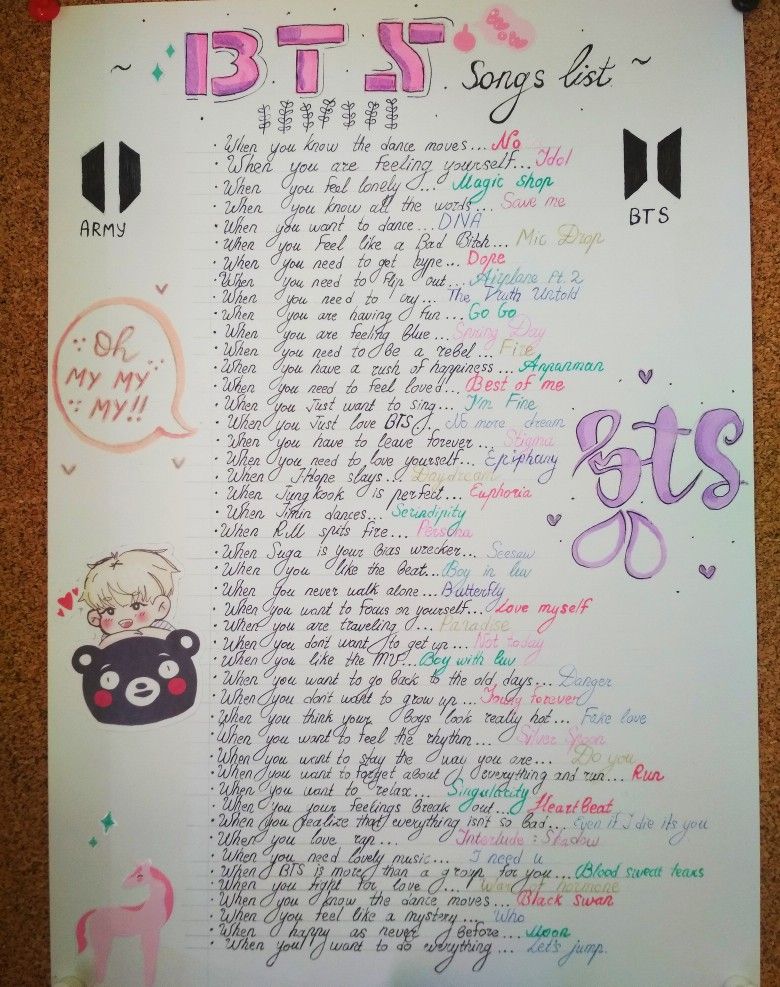 ~ BTS Songs list ~
ARMY
BTS
• When you know the dance moves... No
• When you are feeling yourself... Idol
• When you feel lonely... Magic shop
• When you know all the words... Save me
• When you want to dance... DNA
• When you feel like a Bad Bitch... Mic Drop
• When you need to get hype... Dope
• When you need to flip out... Airplane Pt. 2
• When you need to cry... The Truth Untold
• When you are having fun... Go Go
• When you are feeling blue... Spring Day
• When you need to be a rebel... Fire
• When you have a rush of happiness... Anpanman
• When you need to feel loved... Best of me
• When you Just want to sing... I'm Fine
• When you Just love BTS... No more dream
• When you have to leave forever... Stigma
• When you need to love yourself... Epiphany
• When J-Hope slays... Daydream
• When Jungkook is perfect... Euphoria
• When Jimin dances... Serendipity
• When RM spits fire... Persona
• When Suga is your bias wrecker... Seesaw
• When you like the beat... Boy in luv
• When you never walk alone... Butterfly
• When you want to focus on yourself... Love myself
• When you are traveling... Paradise
• When you don't want to get up... Not today
• When you like the MV... Boy with luv
• When you want to go back to the old days... Danger
• When you don't want to grow up... Young forever
• When you think your Boys look really hot... Fake love
• When you want to feel the rhythm... Silver Spoon
• When you want to stay the way you are... Do you
• When you want to forget about everything and run... Run
• When you want to relax... Singularity
• When you your feelings break out... HeartBeat
• When you realize that everything isnt so bad... Even if I die its you
• When you love rap... Interlude : Shadow
• When you need lovely music... I need u
• When BTS is more than a group for you... Blood sweat tears
• When you fight for love... War of hormone
• When you know the dance moves... Black Swan
• When you feel like a mystery... Who
• When happy as never before... Moon
• When you want to do everything... Let's jump.
Oh
MY MY
MY!!
BTS